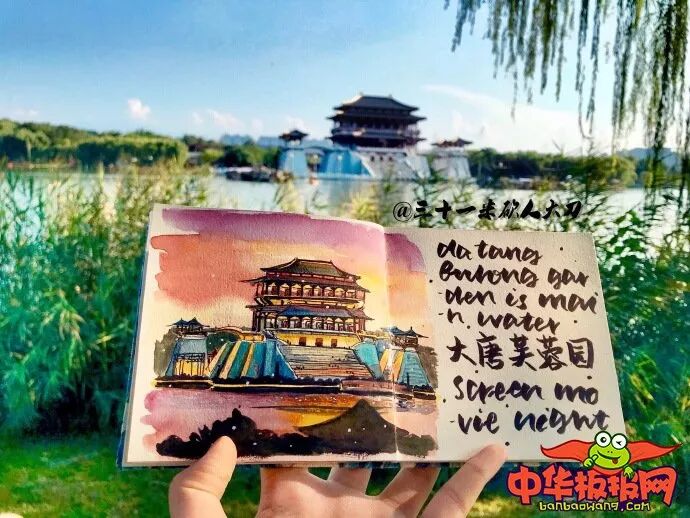 @三十一米砍人大刀
da tang
furong gar
den is mai
n water
大唐芙蓉园
screen mo
vie night
中华板报网
banbaowang.com